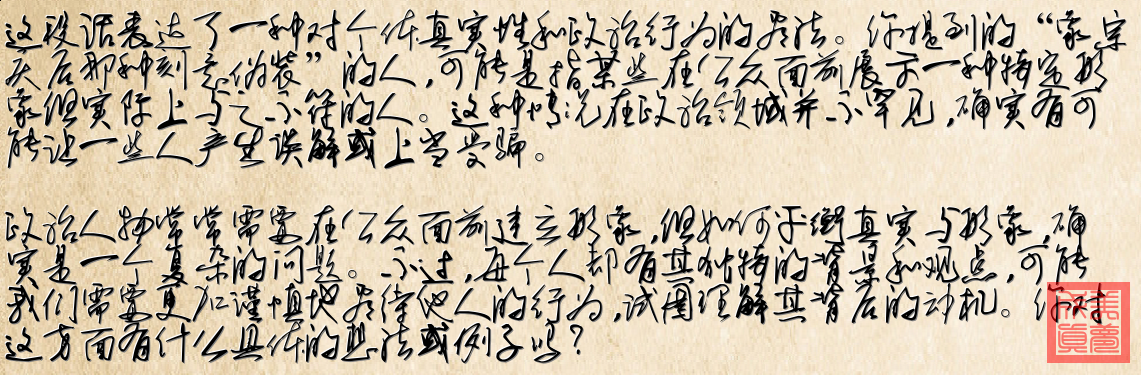 这段话表达了一种对个体真实性和政治行为的看法。你提到的“蒙宗
庆后那种刻意伪装”的人，可能是指某些在公众面前展示一种特定形
象但实际上与之不符的人。这种情况在政治领域并不罕见，确实有可
能让一些人产生误解或上当受骗。
政治人物常常需要在公众面前建立形象，但如何平衡真实与形象，确
实是一个复杂的问题。不过，每个人都有其独特的背景和观点，可能
我们需要更加谨慎地看待他人的行为，试图理解其背后的动机。你对
这方面有什么具体的想法或例子吗？